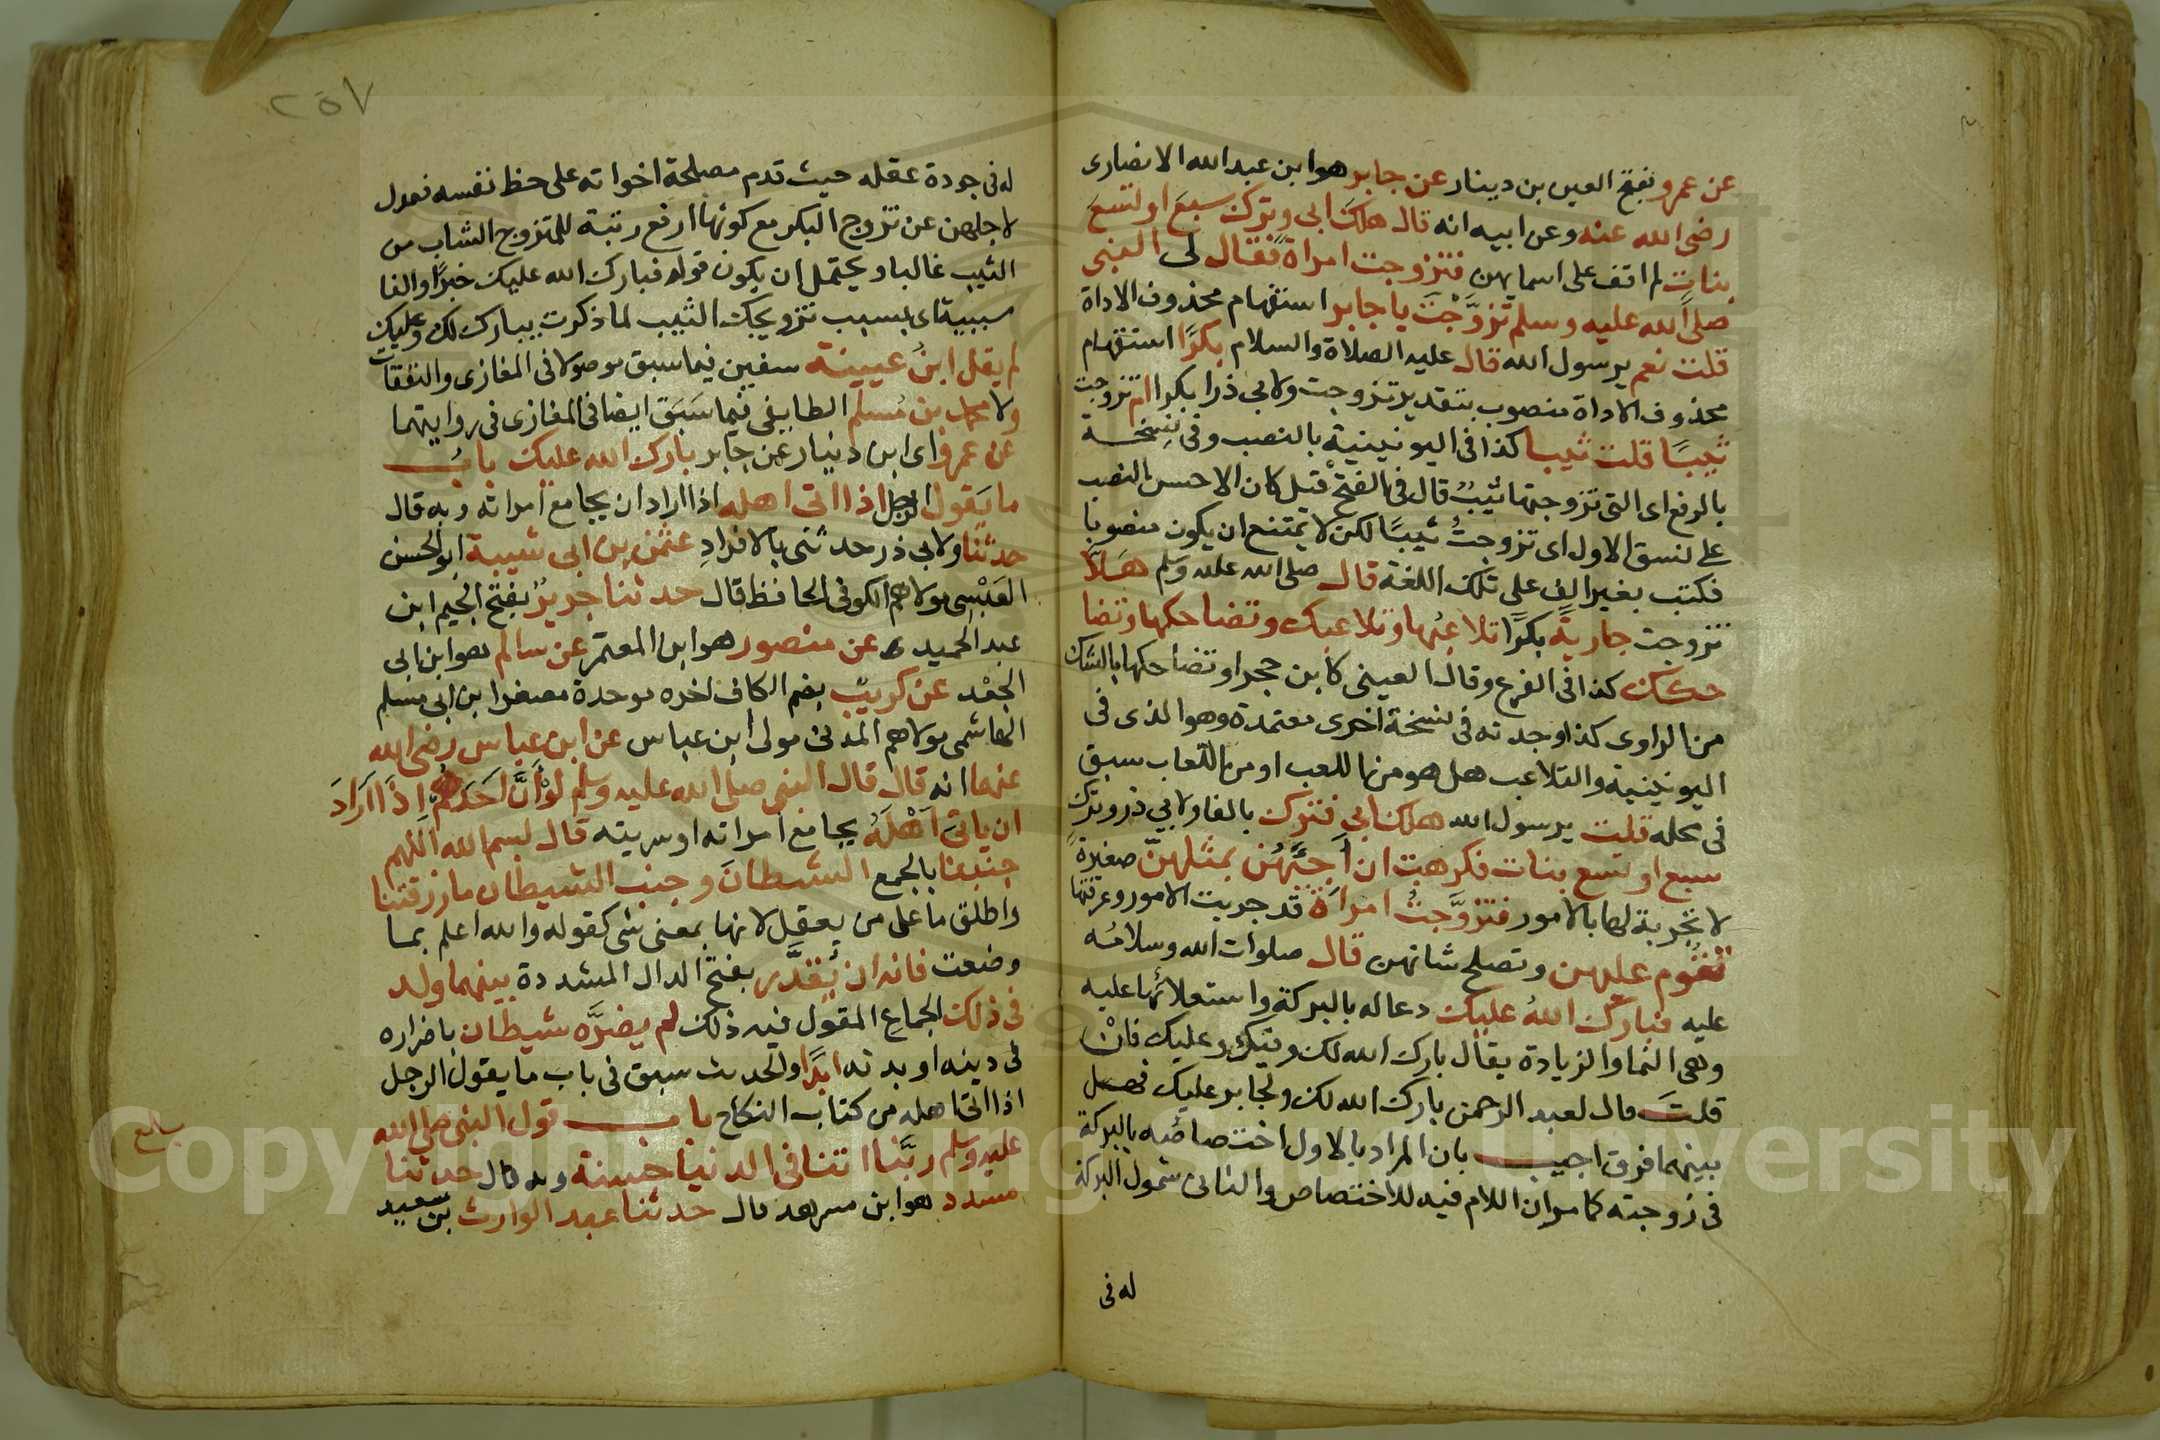 عن عمرو بفتح العين بن دينار عن جابر هو ابن عبد الله الانصارى
رضى الله عنه وعن ابيه انه قال هلك ابى وترك سبع او تسع
بنات لم اقف على اسمايهن فتزوجت امراة فقال لى النبى
صلى الله عليه وسلم تزوجت يا جابر استفهام محذوف الاداة
قلت نعم يرسول الله قال عليه الصلاة والسلام بكرا استفهام
محذوف الاداة منصوب بتقدير تزوجت ولابى ذر ابكرا ام تزوجت
ثيبا قلت ثيبا كذا فى اليونينية بالنصب وفى نسخة
بالرفع اى التى تزوجتها ثيب قال فى الفتح قيل كان الاحسن النصب
على نسق الاول اى تزوجت ثيبا لكن لا يمتنع ان يكون منصوبا
فكتب بغير الف على تلك اللغة قال صلى الله عليه وسلم هلا
تزوجت جارية بكرا تلاعبها وتلاعبك وتضاحكها وتضا
حكك كذا فى الفرع وقال العينى كابن حجر او تضاحكها بالشك
من الراوى كذا وجدته فى نسخة اخرى معتمدة وهو الذى فى
اليونينية والتلاعب هل هو من اللعب او من اللعاب سبق
فى محله قلت يرسول الله هلك ابى فترك بالفا ولابي ذر وترك
سبع او تسع بنات فكرهت ان اجئهن بمثلهن صغيرة
لا تجربة لها بالامور فتزوجت امراة قد جربت الامور وعرفتها
تقوم عليهن وتصلح شانهن قال صلوات الله وسلامه
عليه فبارك الله عليك دعا له بالبركة واستعلائها عليه
وهى النما والزيادة يقال بارك الله لك وفيك وعليك فان
قلت قال لعبد الرحمن بارك الله لك ولجابر عليك فهل
بينهما فرق اجيب بان المراد بالاول اختصاصه بالبركة
فى زوجته كما مر ان اللام فيه للاختصاص والثانى شمول البركة
له فى
٢٥٧
له فى جودة عقله حيث قدم مصلحة اخواته على حظ نفسه فعدل
لاجلهن عن تزوج البكر مع كونها ارفع رتبة للمتزوج الشاب من
الثيب غالبا ويحتمل ان يكون قوله فبارك الله عليك خبرا والفا
سببية اى بسبب تزويجك الثيب لما ذكرت يبارك لك وعليك
لم يقل ابن عيينة سفين فيما سبق موصولا فى المغازى والنفقات
ولا محمد بن مسلم الطايفى فيما سبق ايضا فى المغازى فى روايتهما
عن عمرو اى ابن دينار عن جابر بارك الله عليك باب
ما يقول الرجل اذا اتى اهله اذا اراد ان يجامع امراته وبه قال
حدثنا ولابى ذر حدثنى بالافراد عثمن بن ابى شيبة ابو الحسن
العبسى مولاهم الكوفى الحافظ قال حدثنا جرير بفتح الجيم ابن
عبد الحميد عن منصور هو ابن المعتمر عن سالم هو ابن ابى
الجعد عن كريب بضم الكاف اخره موحدة مصغرا بن ابى مسلم
الهاشمى مولاهم المدنى مولى ابن عباس عن ابن عباس رضى الله
عنهما انه قال قال النبى صلى الله عليه وسلم لو ان احدهم اذا اراد
ان ياتى اهله يجامع امراته او سريته قال بسم الله اللهم
جنبنا بالجمع الشيطان وجنب الشيطان ما رزقتنا
واطلق ما على من يعقل لانها بمعنى شى كقوله والله اعلم بما
وضعت فانه ان يقدر بفتح الدال المشددة بينهما ولد
فى ذلك الجماع المقول فيه ذلك لم يضره شيطان باضراره
فى دينه او بدنه ابدا والحديث سبق فى باب ما يقول الرجل
اذا اتى اهله من كتاب النكاح باب قول النبى صلى الله
عليه وسلم ربنا اتنا فى الدنيا حسنة وبه قال حدثنا
مسدد هو ابن مسرهد قال حدثنا عبد الوارث بن سعيد
Copyright © King Saud University